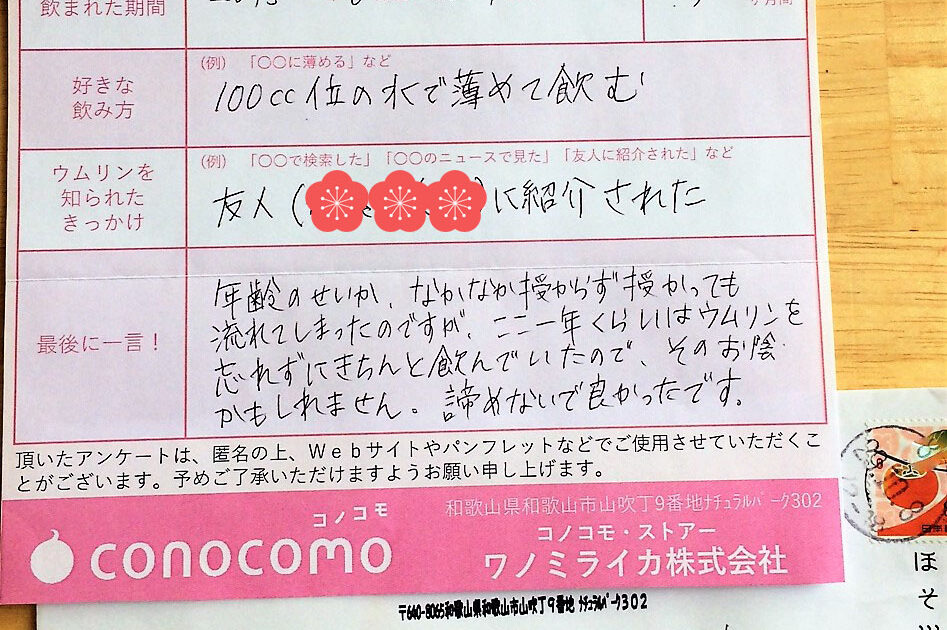 飲まれた期間
ヶ月間
好きな
飲み方
(例) 「〇〇に薄める」など
100cc位の水で薄めて飲む
ウムリンを
知られた
きっかけ
(例) 「〇〇で検索した」「〇〇のニュースで見た」「友人に紹介された」など
友人(
)に紹介された
最後に一言！
年齢のせいか、なかなか授からず授かっても
流れてしまったのですが、ここ一年くらいはウムリンを
忘れずにきちんと飲んでいたので、そのお陰
かもしれません。諦めないで良かったです。
頂いたアンケートは、匿名の上、Ｗｅｂサイトやパンフレットなどでご使用させていただくこ
とがございます。予めご了承いただけますようお願い申し上げます。
コノコモ
conocomo
和歌山県和歌山市山吹丁9番地ﾅﾁｭﾗﾙﾊﾟｰｸ302
コノコモ・ストアー
ワノミライカ株式会社
〒640-8065和歌山県和歌山市山吹丁9番地 ﾅﾁｭﾗﾙﾊﾟｰｸ302
ほそ